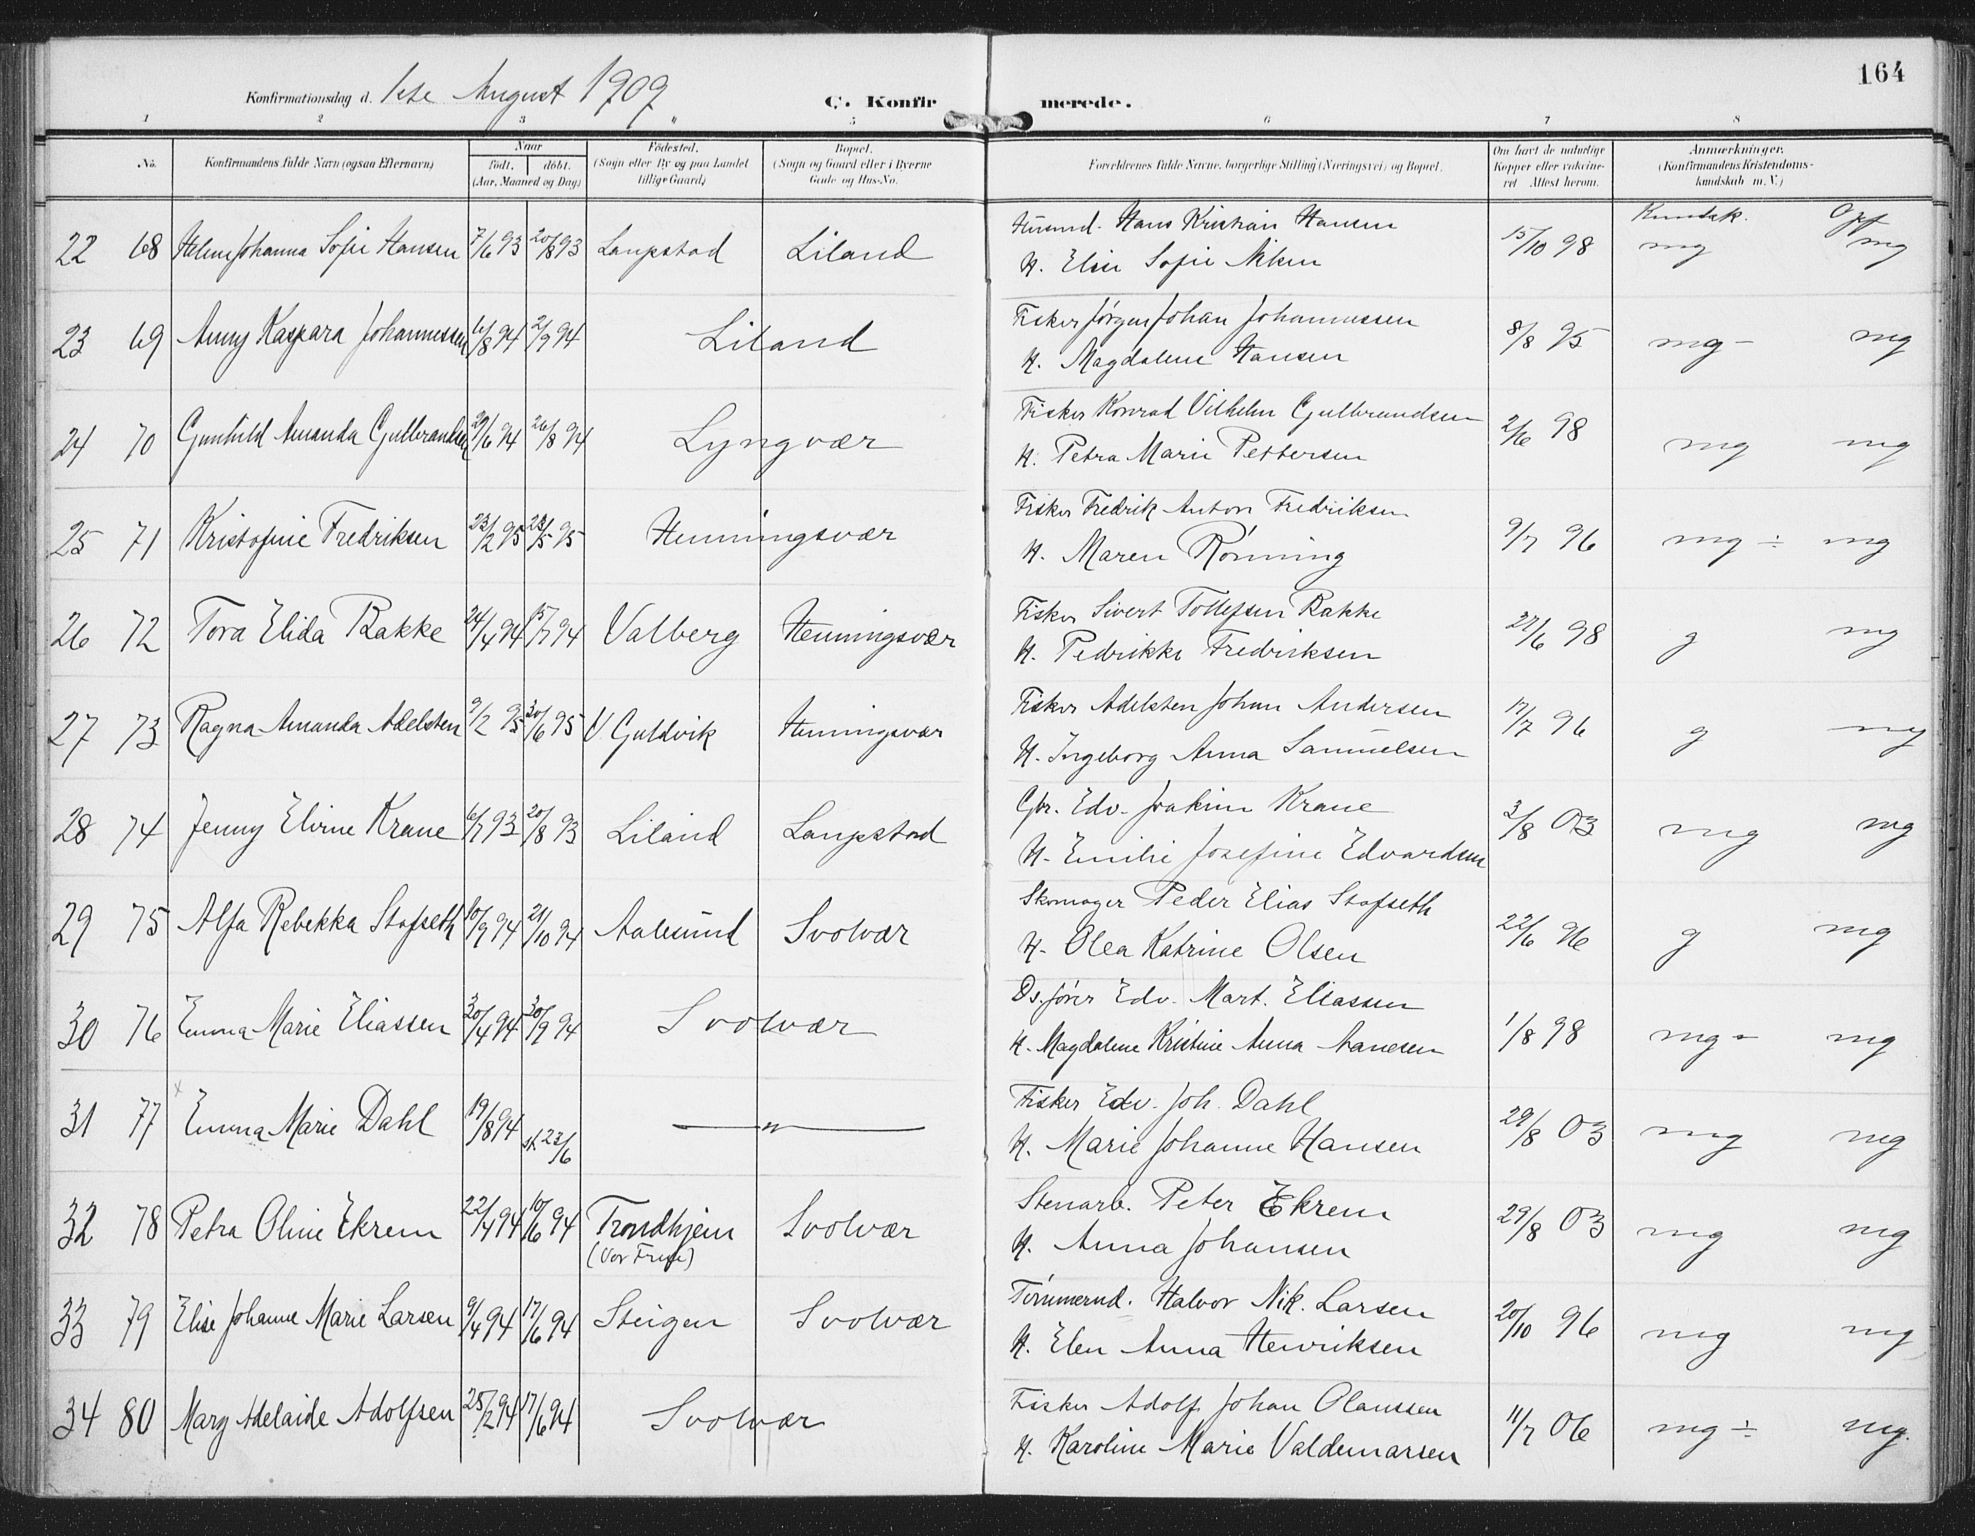 164
Konfirmationsdag d. 1ste August 1909
C. Konfir merede.
1 2 3 4 5 6 7 8
No. Konfirmandens fulde Navn (ogsaa Efternavn) Naar født, døbt. (Aar, Maaned og Dag) Fødested. (Sogn eller By og paa Landet tillige Gaard) Bopæl. (Sogn og Gaard eller i Byerne Gade og Hus-No. Forældrenes fulde Navne, borgerlige Stilling (Næringsvei) og Bopæl. Om havt de naturlige Kopper eller vakcineret Attest herom. Anmærkninger. (Konfirmandens Kristendomskundskab m. V.)
Kundsk. Opf
22 68 Helene Johanna Sofie Hansen 7/6 93 20/8 93 Laupstad Liland Husmd. Hans Kristian Hansen 15/10 98 mg mg
H. Elise Sofie
23 69 Anny Kaspara Johannessen 6/8 94 2/9 94 Liland Fisker Jørgen Johan Johannessen 8/8 95 mg - mg
H. Magdalene Hansen
24 70 Gunhild Amanda Gulbrandsen 29/6 94 26/8 94 Lyngvær Fisker Konrad Vilhelm Gulbrandsen 2/6 98 mg mg
H. Petra Marie Pettersen
25 71 Kristofine Fredriksen 23/2 95 23/5 95 Henningsvær Fisker Fredrik Anton Fredriksen 9/7 96 mg ÷ mg
H. Maren Rønning
26 72 Tora Elida Bakke 24/4 94 15/7 94 Valberg Henningsvær Fisker Sivert Tollefsen Bakke 27/6 98 g mg
H. Pedrikke Fredriksen
27 73 Ragna Amanda Adelsten 9/2 95 30/6 95 V Guldvik Henningsvær Fisker Adelsten Johan Andersen 17/7 96 g mg
H. Ingeborg Anna Samuelsen
28 74 Jenny Elvine Krane 6/7 93 20/8 93 Liland Laupstad Gbr. Edv. Joakim Krane 3/8 03 mg mg
H. Emilie Josefine Edvardsen
29 75 Alfa Rebekka Stafseth 10/9 94 21/10 94 Aalesund Svolvær Skomager Peder Elias Stafseth 22/6 96 g mg
H. Olea Katrine Olsen
30 76 Emma Marie Eliassen 30/4 94 30/9 94 Svolvær Ds.fører Edv. Mart. Eliassen 1/8 98 mg - mg
H. Magdalene Kristine Anna
31 77 Emma Marie Dahl 19/8 94 st. 23/6 — " — Fisker Edv. Joh. Dahl 29/8 03 mg mg
H. Marie Johanne Hansen
32 78 Petra Oline Ekrem 22/4 94 10/6 94 Trondhjem Svolvær Stenarb. Peter Ekrem 29/8 03 mg mg
(Vor Frue) H. Anna Johansen
33 79 Elise Johanne Marie Larsen 9/4 94 17/6 94 Steigen Svolvær Tømmermd. Halvor Nik. Larsen 20/10 96 mg mg
H. Elen Anna Henriksen
34 80 Marg Adelaide Adolfsen 25/2 94 17/6 94 Svolvær Fisker Adolf Johan Olaussen 11/7 06 mg ÷ mg.
H. Karoline Marie Valdemarsen